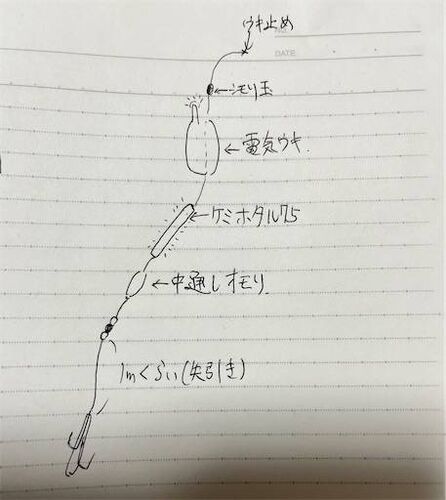 ウキ止め
NO.
DATE
←シモリ玉
←電気ウキ.
←ケミホタル75
←中通しオモリ.
1mくらい(矢引き)